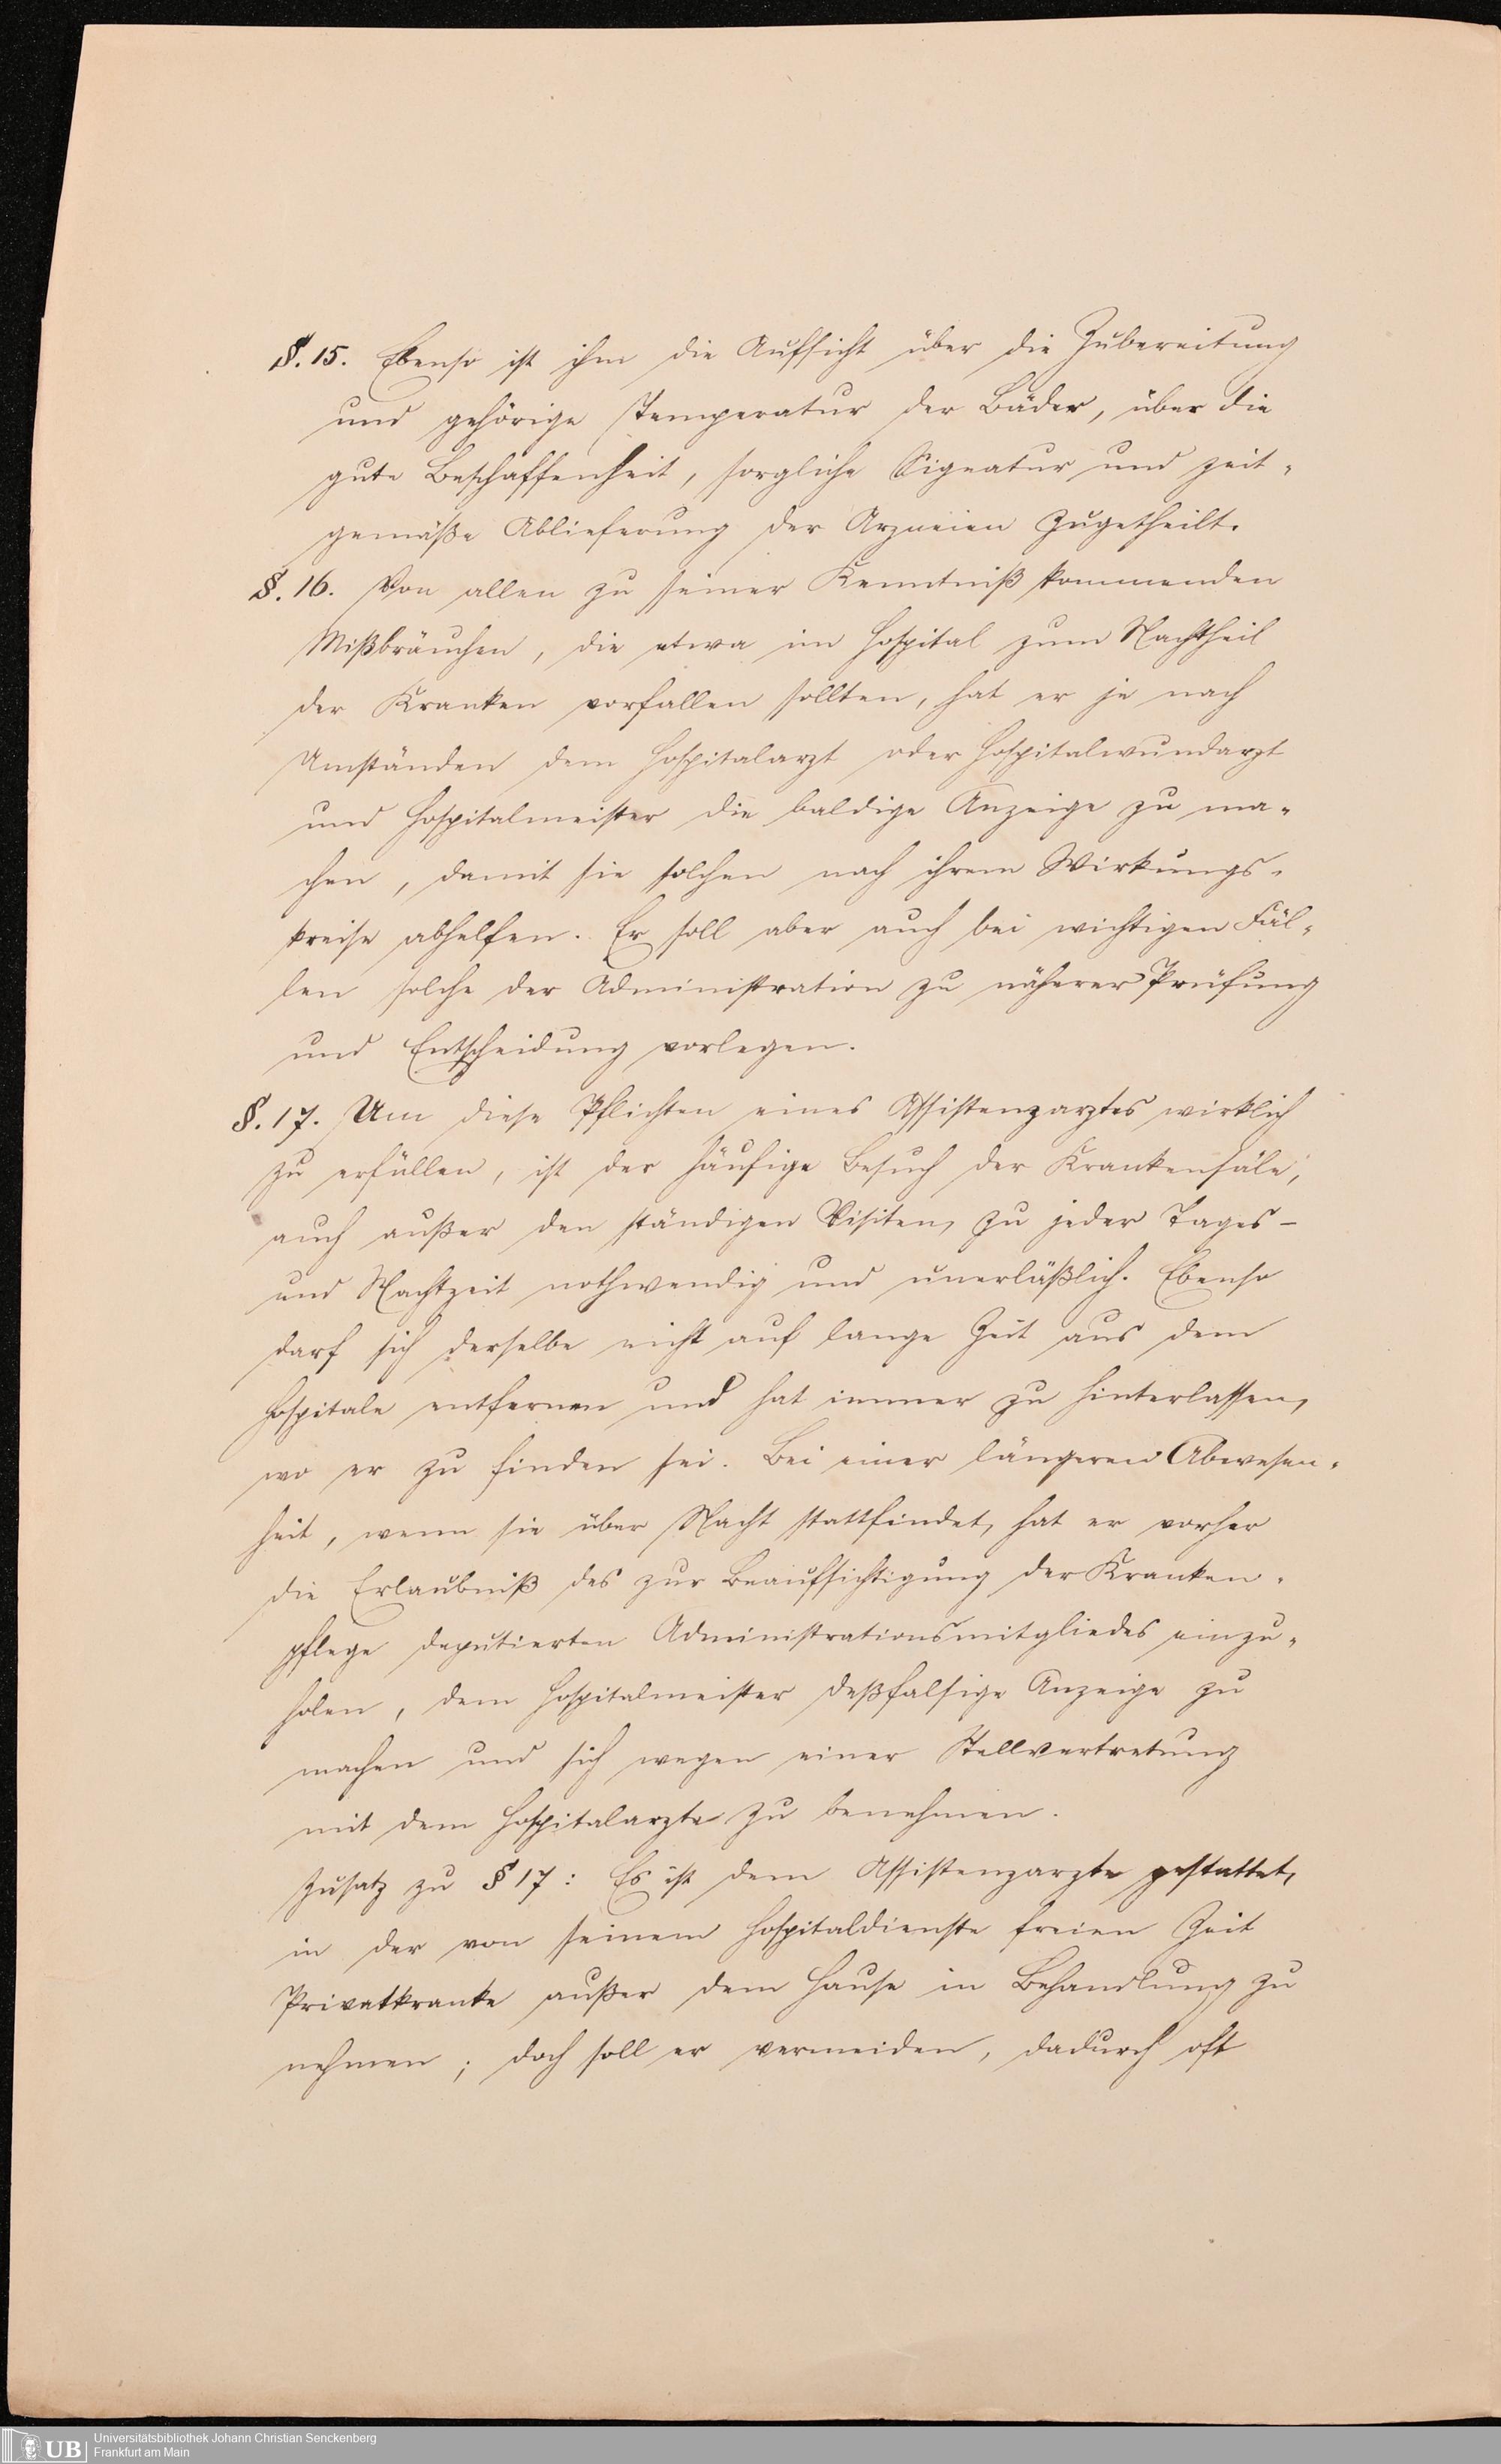 §. 15. Ebenso ist ihm die Aufsicht über die Zubereitung
und gehörige Temperatur der Bäder, über die
gute Beschaffenheit, sorgliche Signatur und zeit-
gemäße Ablieferung der Arzneien zugetheilt.
§. 16. Von allen zu seiner Kenntniß kommenden
Mißbräuchen, die etwa im Hospital zum Nachtheil
der Kranken vorfallen sollten, hat er je nach
Umständen dem Hospitalarzt oder Hospitalwundarzt
und Hospitalmeister die baldige Anzeige zu ma-
chen, damit sie solchen nach ihrem Wirkungs-
kreise abhelfen. Er soll aber auch bei wichtigen Fäl-
len solche der Administration zu näherer Prüfung
und Entscheidung vorlegen.
§. 17. Um diese Pflichten eines Assistenzarztes wirklich
zu erfüllen, ist der häufige Besuch der Krankensäle,
auch außer den ständigen Visiten, zu jeder Tages-
und Nachtzeit nothwendig und unerläßlich. Ebenso
darf sich derselbe nicht auf lange Zeit aus dem
Hospitale entfernen und hat immer zu hinterlassen,
wo er zu finden sei. Bei einer längeren Abwesen-
heit, wenn sie über Nacht stattfindet, hat er vorher
die Erlaubniß des zur Beaufsichtigung der Kranken-
pflege deputierten Administrationsmitgliedes einzu-
holen, dem Hospitalmeister deßfalsige Anzeige zu
machen und sich wegen einer Stellvertretung
mit dem Hospitalarzte zu benehmen.
Zusatz zu § 17: Es ist dem Assistenzarzte gestattet,
in der von seinem Hospitaldienste freien Zeit
Privatkranke außer dem Hause in Behandlung zu
nehmen; doch soll er vermeiden, dadurch oft
UB
Universitätsbibliothek Johann Christian Senckenberg
Frankfurt am Main